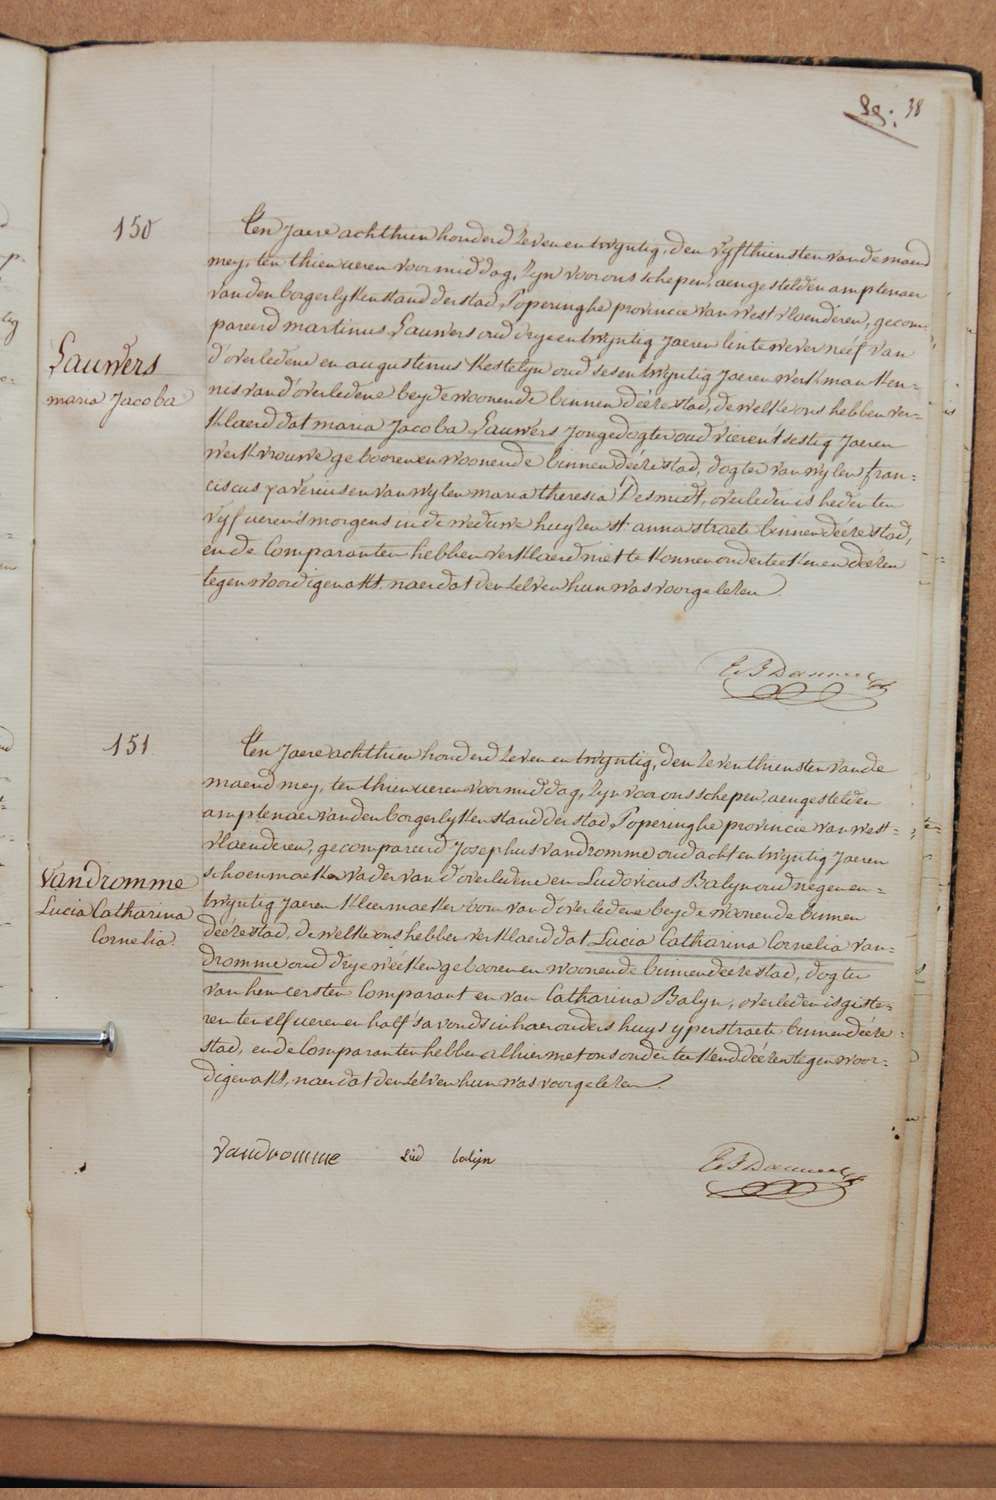 38
150
Lauwers
maria Jacoba
Ten Jaere achthien honderd zeven en twyntig, den vyfthiensten van de maend
mey, ten thien ueren voormiddag, zyn voor ons schepen, aengestelden amptenaer
van den borgerlyken stand der stad Poperinghe provincie van West vlaenderen, gecom-
pareerd martinus Lauwers oud drye en twyntig Jaeren lintewever néef van
d'overledene en augustinus Kestelyn oud ses en twyntig Jaeren werkman ken-
nis van d'overledene beyde woonende binnen déézestad, de welke ons hebben ver-
klaerd dat maria Jacoba Lauwers Jongedogter oud vier en t'sestig Jaeren
werkvrouwe gebooren en woonende binnen déézestad, dogter van wylen fran-
ciscus xaverius en van wylen maria theresia Desmidt, overleden is heden ten
vyf ueren 's morgens in de weduwe huyzen st anna straete binnen déézestad,
en de Comparanten hebben verklaerd niet te konnen onderteekenen déézen
tegenwoordigen akt, naer dat den zelven hun was voorgelezen.
151
Vandromme
Lucia Catharina
Cornelia.
Ten Jaere achthien honderd zeven en twyntig, den zeventhiensten van de
maend mey, ten thien ueren voormiddag, zyn voor ons schepen, aengestelden
amptenaer van den borgerlyken stand der stad Poperinghe provincie van west-
vlaenderen, gecompareerd Josephus vandromme oud acht en twyntig Jaeren
schoenmaeker vader van d'overledene en Ludovicus Balyn oud negen en-
twyntig Jaeren kleermaeker oom van d'overledene beyde woonende binnen
déézestad, de welke ons hebben verklaerd dat Lucia Catharina Cornelia van-
dromme oud drye wééken gebooren en woonende binnen déézestad, dogter
van hem eersten Comparant en van Catharina Balyn, overleden is giste-
ren ten elf ueren en half 's avonds in haer ouders huys yperstraete binnen dééze-
stad, en de Comparanten hebben alhier met ons onderteekend déézen tegenwoor-
digen akt, naer dat den zelven hun was voorgelezen.
vandromme
Lud balyn